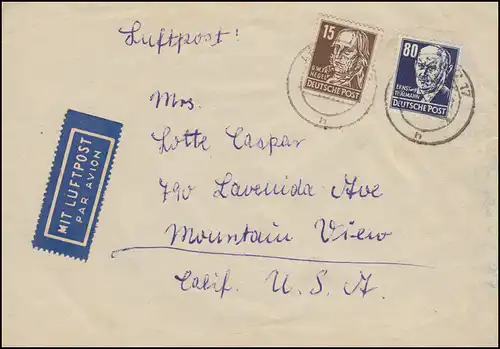 Luftpost!
15
G.W.FR.
HEGEL
DEUTSCHE POST
80
ERNST
THÄLMANN
DEUTSCHE POST
MIT LUFTPOST
PAR AVION
Mrs.
Lotte Caspar
790 Lavenida Ave
Mountain View
Calif. U. S. A.